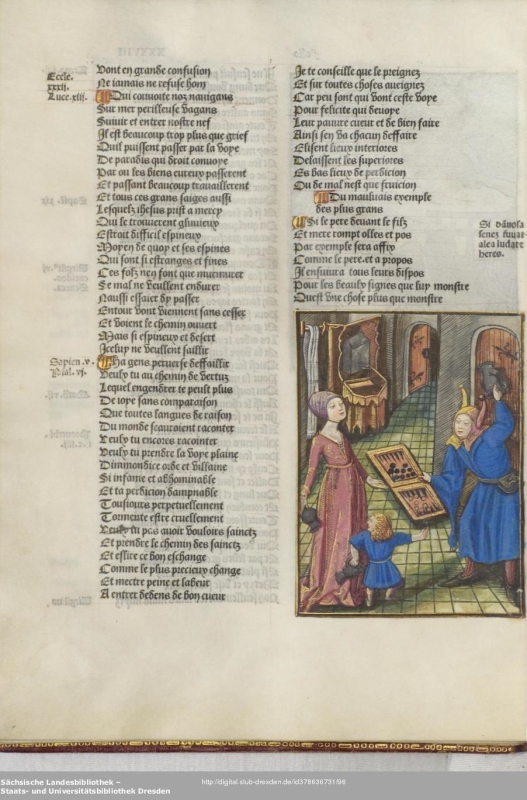 Eccle.
xxxii.
Luce.xiii.
Vont en grande confusion
Ne iamais ne refuse hom
Qui conuoite noz nauigans
Sur mer perilleuse vagans
Suiuir et entrer nostre nef
Il est beaucoup trop plus que grief
Quil puissent passer par la voye
De paradis qui droit conuoye
Par ou les biens eureux passerent
Et passant beaucoup trauaillerent
Et tous ces grans saiges aussi
Lesquelz ihesus prist a mercy
Qui le trouuerent gluuieux
Estroit difficil espineux
Moyen de quoy et ses espines
Qui sont si estranges et fines
Ces folz neq font que murmurer
Se mal ne veullent endurer
Naussi essaier dy passer
Entour vont viennent sans cesser
Et voient le chemin ouuert
Mais si espineux et desert
Iceluy ne veullent saillir
Sapien.v.
Psal.vi.
Ha gens peruerse deffaillir
Veulx tu au chemin de vertuz
Lequel engendrer te peult plus
De ioye sans comparaison
Que toutes langues de raison
Du monde scauroient raconter
Veulx tu encores raconter
Veulx tu prendre la voye plaine
Dimmondice orde et villaine
Si infame et abhominable
Et ta perdicion dampnable
Tousiours perpetuellement
Tormente estre cruellement
Veulx tu pas auoir vouloirs sainctz
Et prendre le chemin des sainctz
Et eslire ce bon eschange
Comme le plus precieux change
Et mectre peine et labeur
A entrer dedens de bon cueur
Je te conseille que le preignez
Et sur toutes choses aueignez
Car peu sont qui vont ceste voye
Pour felicite qui deuoye
Leur pauure cueur et de bien faire
Ainsi sen va chacun deffaire
Elisent lieux interiores
Delaissent les superiores
Es bas lieux de perdicion
Ou de mal nest que fruicion
Du mauluais exemple
des plus grans
Si le pere deuant le filz
Et mere rompt olles et pos
Par exemple sera affix
Comme le pere.et a propos
Il ensuiura tous leurs dispos
Pour les beaulx signes que luy monstre
Quest vne chose plus que monstre
Si dānosa
senez iuuat
alea ludat et
heres.
Sächsische Landesbibliothek –
Staats- und Universitätsbibliothek Dresden
http://digital.slub-dresden.de/id378636731/96